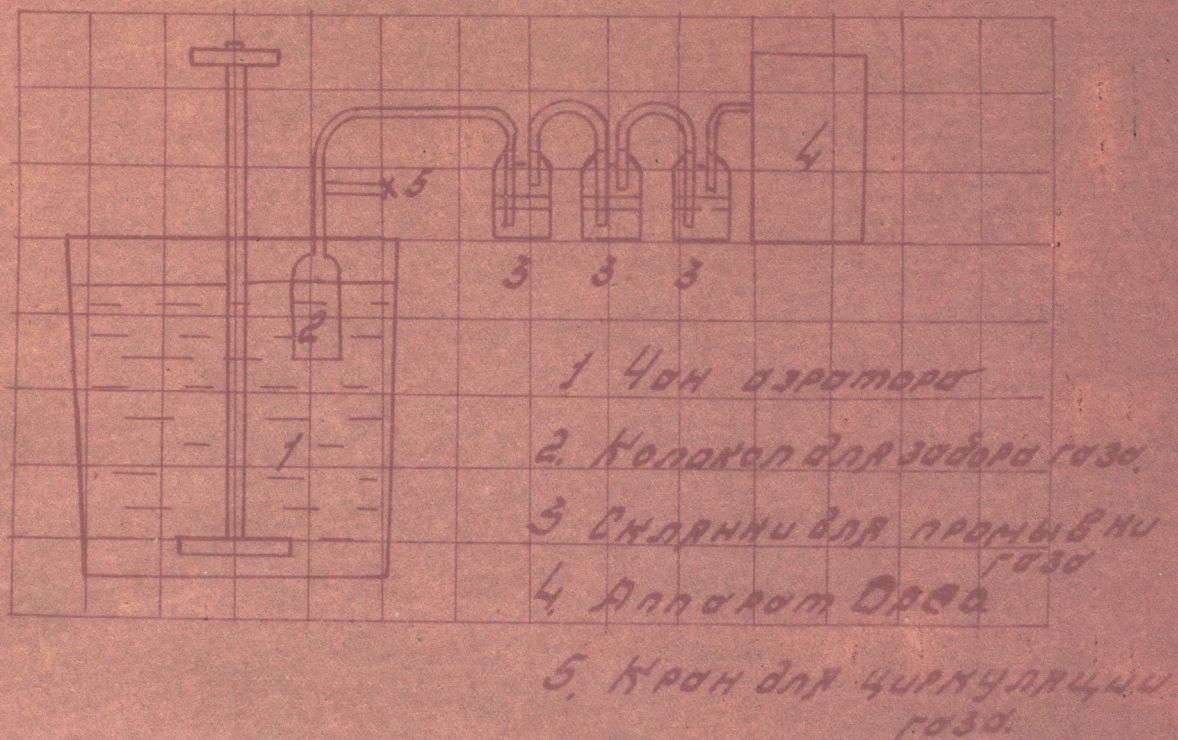 5
4
3 3 3
2
1
1 Чан аэратора
2. Колокол для забора газа.
3 Склянки для промывки
газа
4. Аппарат Орса
5. Кран для циркуляции
газа.